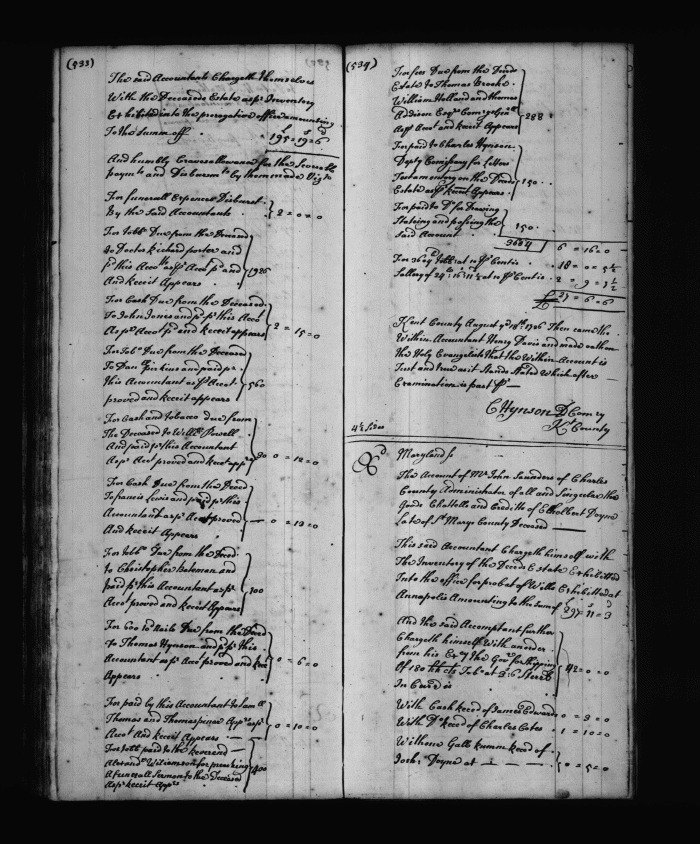 (533)
The said Accountants Chargeth themselves
With the Deceaseds Estate asp Inventory
Exhibited into the prerogative office amounting
To the Summ off 195=19=6
And humbly Craves allowance for the Severall
paym.ts and Disburm.ts by them made Viz.t
For funerall Expences Disburst
By the Said Accountants 2=0=0
For Tobb.o Due from the Deceased
to Doctor Richard porter and
p.d this Acco.t asp Acco.t p.d and
And Receit Appears 1926
For Cash Due from the Deceased
To John Jones and p.d p this Acco.t
Asp Acco.t p.d and receit appears 2=15=0
For Tob.o Due from the Deceased
To Dan Perkins and paid p
this Accountant asp Acco.t
proved and receit appears 560
For Cash and tobacco due from
The Deceased to Will.m Powell
And paid p this Accountant
Asp Acco.t proved and receit app.s 90 0=12=0
For Cash Due from the Deced
To francis Lewis and paid p this
Accountant asp Acco.t proved
And receit Appears 0=13=0
For Tobb.o Due from the Deced
to Christopher Bateman and
paid p this Accountant asp
Acco.t proved and Receit Appears 100
For 600 10 Nails Due from the Deced
to Thomas Hynson and p.d p this
Accountant asp Acco.t proved and
Appears 0=6=0
For paid by this Accountant to
Thomas and Thomas App.s asp
Acco.t And receit Appears 0=10=0
For Tobb paid to the Reverend
Alexand.r Williamson for preaching
A funerall Sermon to the Deceased
Asp receit App.s 400
(534)
For fees Due from the Deceds
Estate to Thomas Brooke
William Holland and thomas
Addison Esq.rs
Asp Acco.t and Receit Appears 288
For paid to Charles Hynson
Depty Comissary for Letters
Testamentary on the Deceds
Estate asp Receit Appears 150
For paid to D.o for Drawing
Stateing and passing the
Said Account 150
3664 6=16=0
For 3664 Tobb at p Centis 18=0=5½
Sallery of 24.£ 16.s 11½.d at p Centis 2=9=5½
£ 27=6=6
Kent County August y.e 18.th 1726 Then came the
Within Accountant Henry Davis and made oath on
the Holy Evangelists that the Within Account is
Just and true as it Stands Stated Which after
Examination is past p
C Hynson D Comry
K.t County
4½ sides
Maryland ss
The Account of M.r John Saunders of Charles
County Administrator of all and Singular the
Goods Chattells and Credits of Ethelbert Doyne
Late of S.t Marys County Deceased
This said Accountant Chargeth himself with
The Inventory of the Deceds Estate Exhibitted
Into the office for probat of Wills Exhibitted at
Annapolis Amounting to the Sum of 297=11=3
And the said Accomptant further
Chargeth himself With an order
from his Ex.cy the Gov.r for Shipping
Of 180
In Cecd is 42=0=0
With Cash Reced of James Edwards 0=3=0
With D.o Reced of Charles Cotes 1=10=0
With one Gall Rumm Reced of
Josh: Doyne at 0=5=0